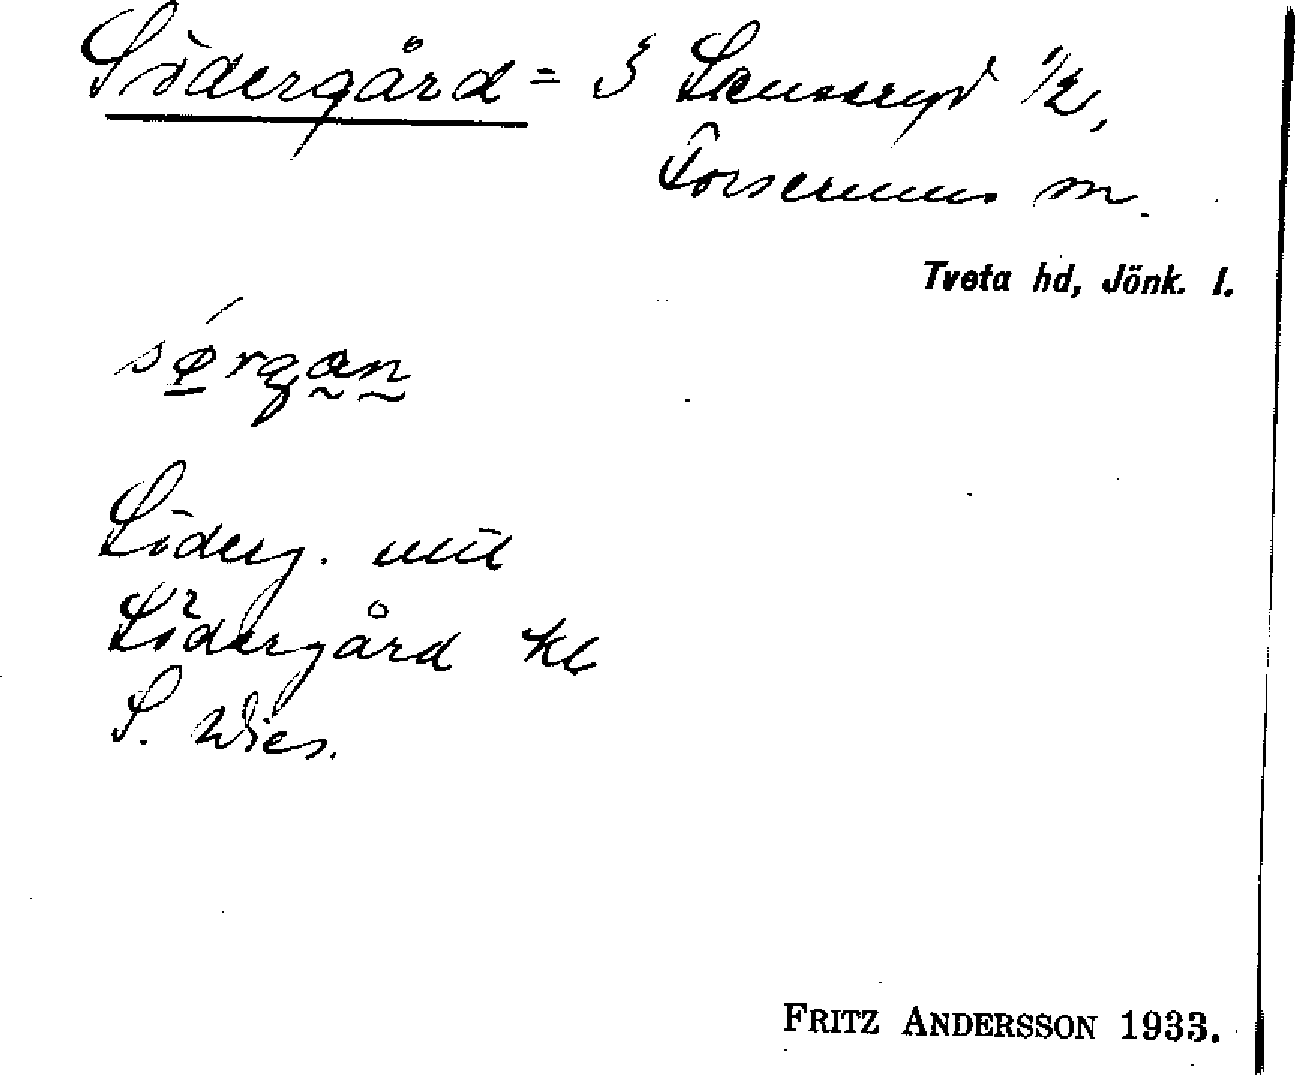 Södergård = 3 Skuseryd 1/2,
Forserums sn.
Tveta hd, Jönk. l.
sørgan
Söderg. utd
Södergård kb
S. Wies.
FRITZ ANDERSSON 1933.